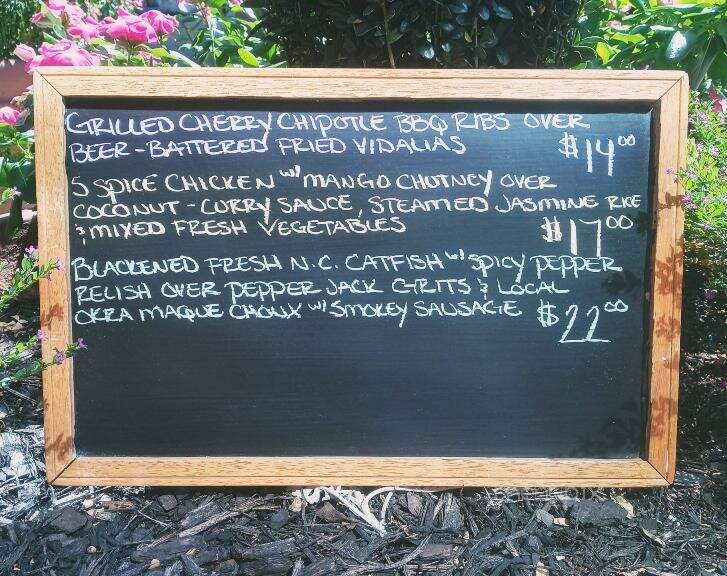 GRILLED CHERRY CHIPOTLE BBQ RIBS OVER
BEER-BATTERED FRIED VIDALIAS $14.00
5 SPICE CHICKEN w/ MANGO CHUTNEY OVER
COCONUT-CURRY SAUCE, STEAMED JASMINE RICE
& MIXED FRESH VEGETABLES $17.00
BLACKENED FRESH N.C. CATFISH w/ SPICY PEPPER
RELISH OVER PEPPER JACK GRITS & LOCAL
OKRA MAQUE CHOUX w/ SMOKEY SAUSAGE $22.00